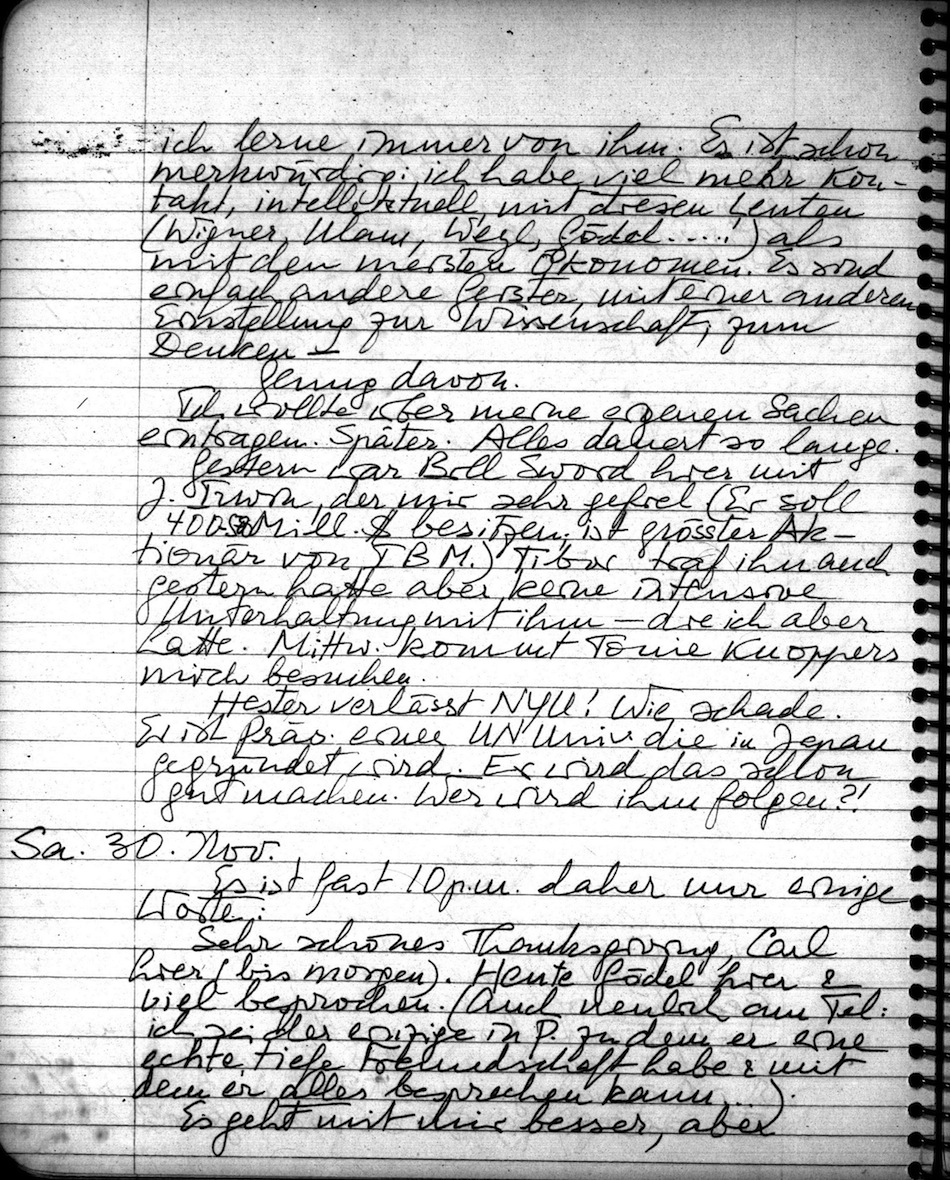 ich lerne immer von ihm. Es ist schon
merkwürdig: ich habe viel mehr Kon-
takt, intellektuell, mit diesen Leuten
(Wigner, Ulam, Weyl, Gödel.....!) als
mit den meisten Ökonomen. Es sind
einfach andere Geister, mit einer anderen
Einstellung zur Wissenschaft, zum
Denken —
Genug davon.
Ich wollte über meine eigenen Sachen
eintragen. Später. Alles dauert so lange.
Gestern war Bill Sword hier mit
J. Irwin, der mir sehr gefiel (Er soll
400 Mill. $ besitzen, ist grösster Ak-
tionär von IBM.) Tibor traf ihn auch
gestern hatte aber keine intensive
Unterhaltung mit ihm — die ich aber
hatte. Mittw. kommt Tonie Knoppers
mich besuchen.
Hester verlässt NYU! Wie schade.
Er ist Präs. einer UN Univ. die in Japan
gegründet wird. Er wird das schon
gut machen. Wer wird ihm folgen?!
Sa. 30. Nov.
Es ist fast 10 p.m. daher nur einige
Worte:
Sehr schönes Thanksgiving, Carl
hier (bis morgen). Heute Gödel hier &
viel besprochen. (Auch neulich am Tel:
ich sei der einzige in P. zu dem er eine
echte, tiefe Freundschaft habe & mit
dem er alles besprechen kann...).
Es geht mit mir besser, aber